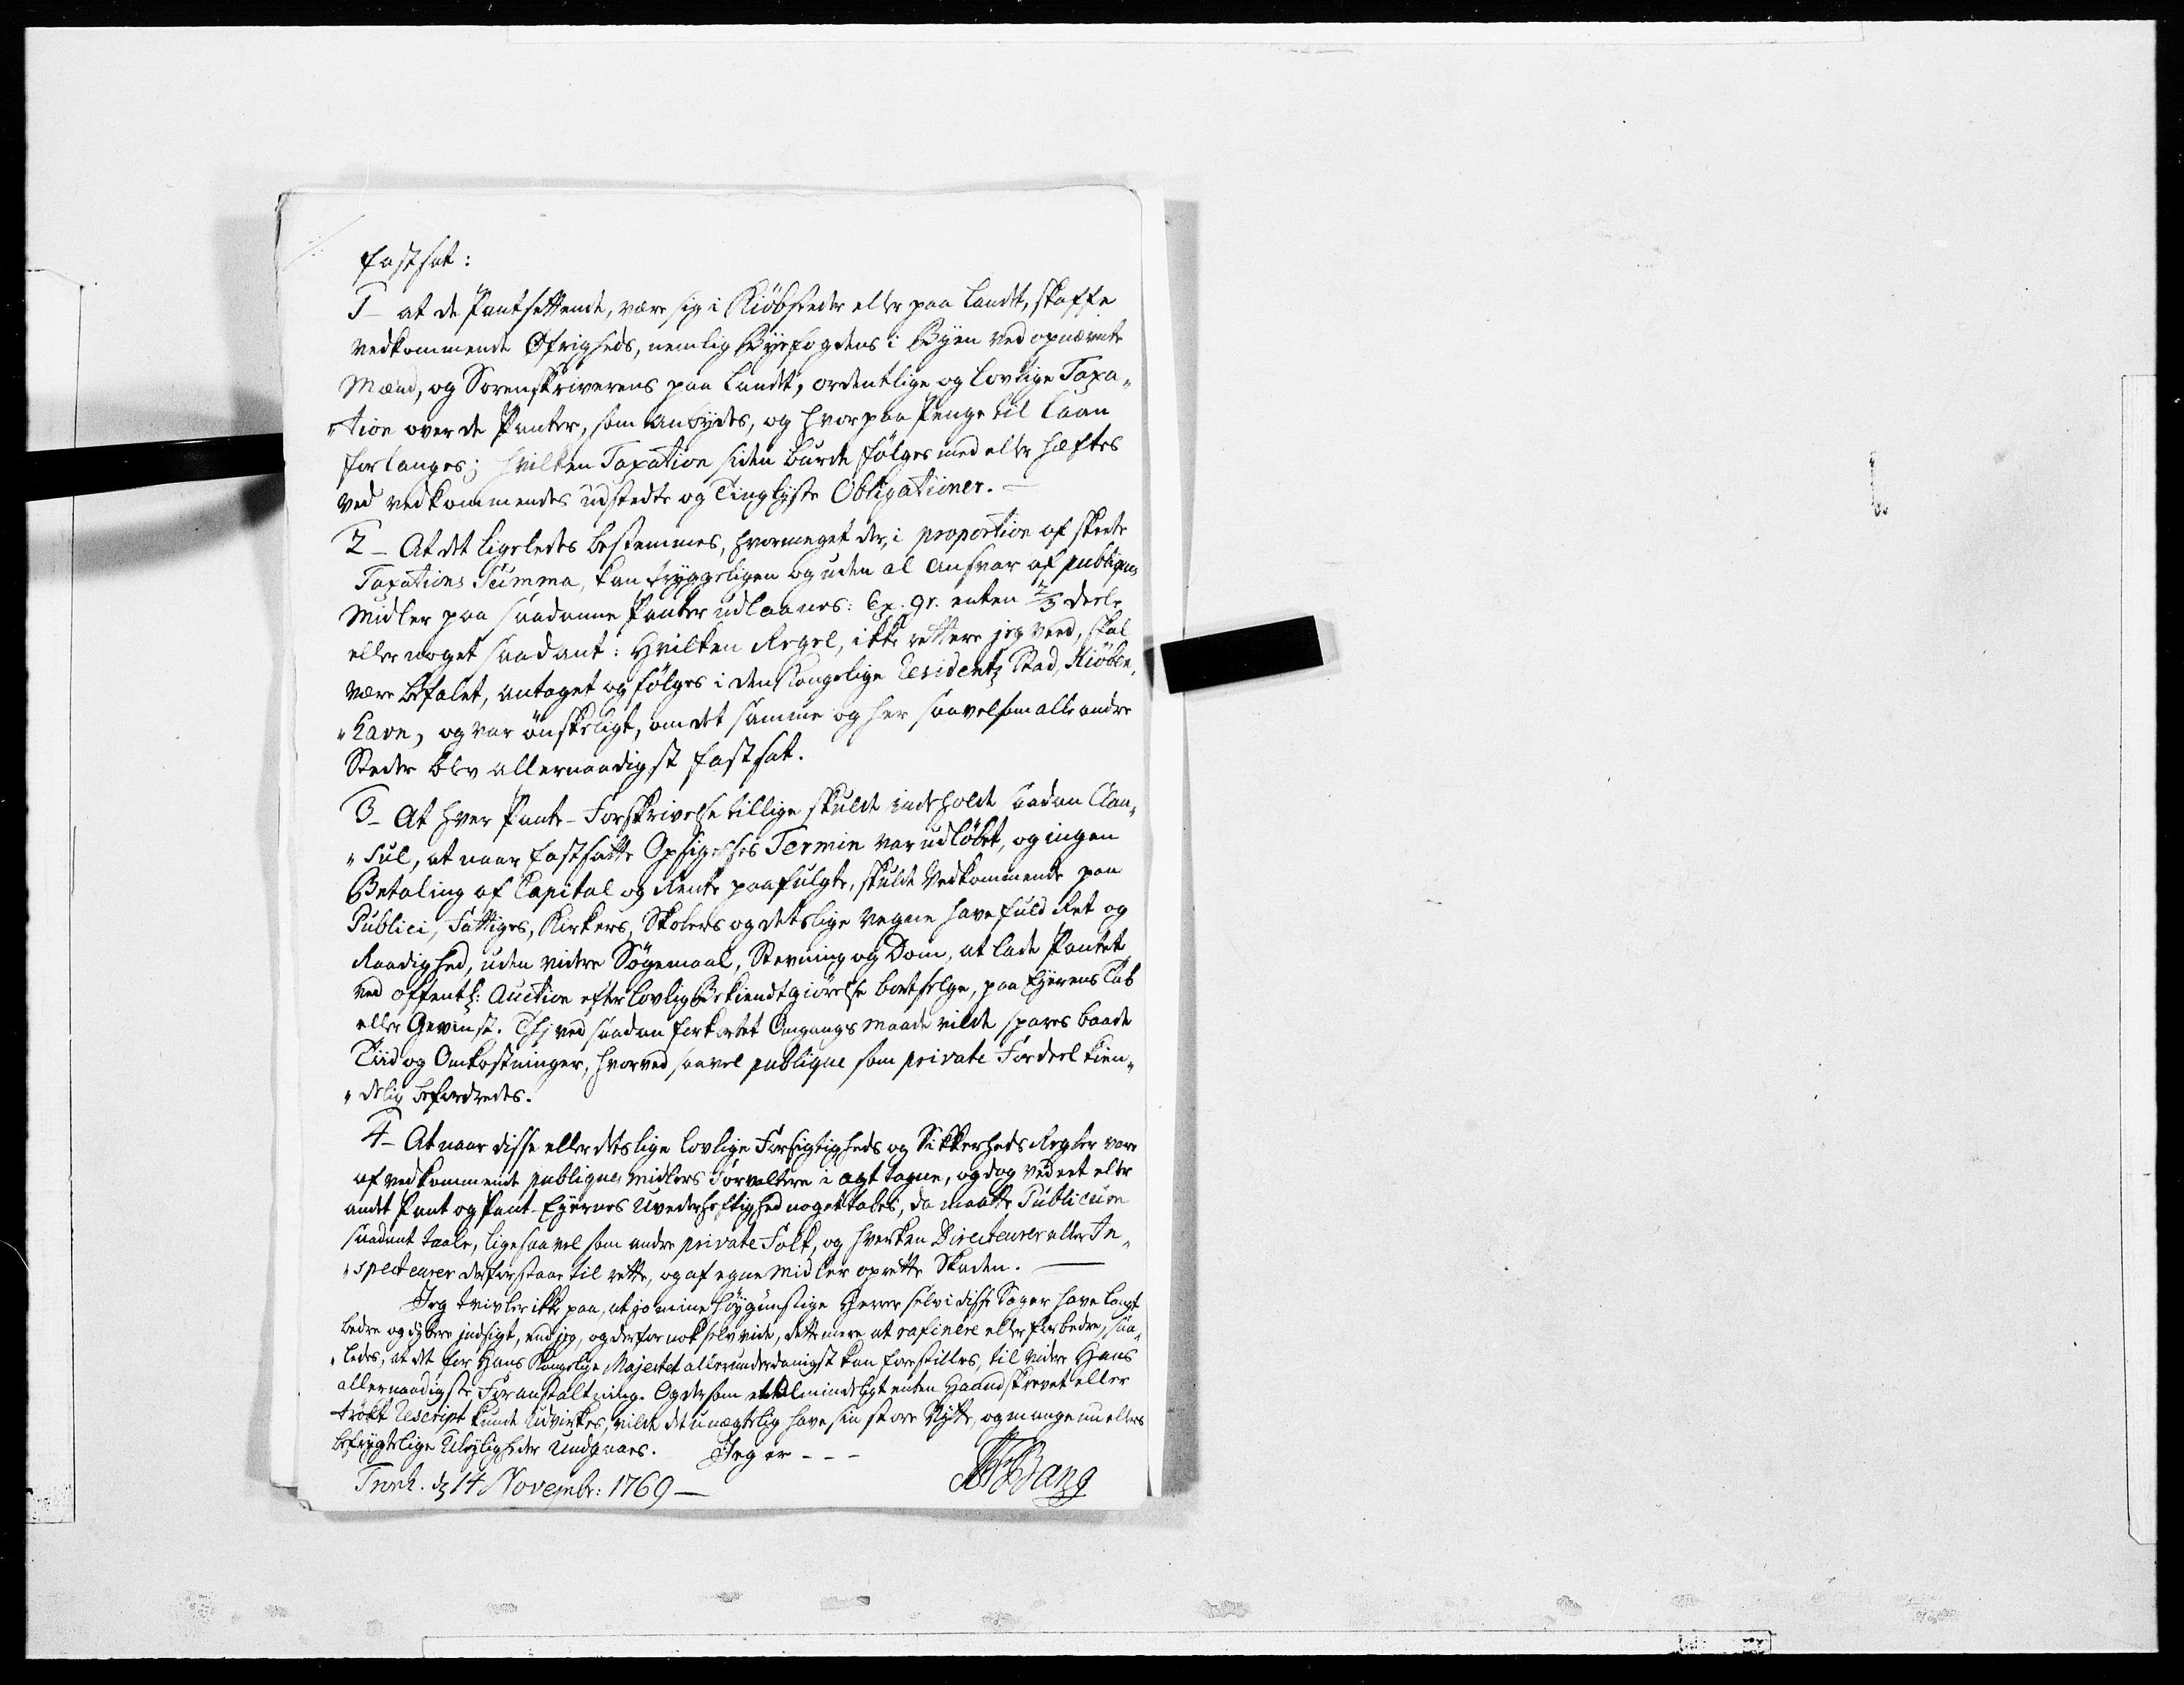 fastsat:
1 - at de Pantsettende, være sig i Kiöbsteder eller paa Landet, skaffe
vedkommende Øfrigheds, nemlig Byefogdens i Byen ved opnævnte
Mænd, og Sorenskriverens paa Landet, ordentlige og lovlige Taxa„
„tion over de Panter, som anbydes, og hvorpaa Penge til Laan
forlanges; hvilken Taxation siden burde følges med eller hæftes
ved vedkommendes udstedte og Tinglyste Obligationer. —
2 - At det ligeledes bestemmes, hvormeget der, i proportion af skeete
Taxations Summa, kan tryggeligen og uden al Ansvar af publiqves
Midler paa saadanne Panter udlaanes: Ex. gr. enten 2/3 deele
eller noget saadant: Hvilken Regel, ikke rettere jeg veed, skal
være befalet, antaget og følges i den Kongelige Residentz Stad, Kiöben„
„havn, og var ønskeligt, om det samme og her saavelsom alle andre
Steder blev allernaadigst fastsat.
3 - At hver Pante-Forskrivelse tillige skulde indeholde saadan Clau„
„sul, at naar fastsatte Opsigelses Termin var udløbet, og ingen
Betaling af Capital og Rente paafulgte, skulde Vedkommende paa
Publici, Fattiges, Kirkers, Skolers og detslige vegne have fuld Ret og
Raadighed, uden videre Søgemaal, Stevning og Dom, at lade Pantet
ved offentl: Auction efter lovlig Bekiendtgiørelse bortselge, paa Eyerens Tab
eller Gevinst. Thj ved saadan forkortet Omgangs Maade vilde spares baade
Tiid og Omkostninger, hvorved saavel publique som private Fordeel kien„
„delig befordredes.
4 - At naar disse eller detslige lovlige Forsigtigheds og Sikkerheds Regler vare
af vedkommende publiques Midlers Forvaltere i agt tagne, og dog ved eet eller
andet Pant og Pant-Eyernes Uvederheftighed noget tabes, da maatte Publicum
saadant taale, ligesaavel som andre private Folk, og hverken Directeurer eller In„
„specteurer derfor staae til rette, og af egne Midler oprette Skaden. —
Jeg tvivler ikke paa, at jo mine Høygunstige Herrer selv i disse Sager have langt
bedre og dybere indsigt, end jeg, og derfor nok selv vide, dette mere at rafinere eller forbedre, saa„
„ledes, at det for Hans Kongelige Majestet allerunderdanigst kan forestilles, til videre Hans
allernaadigste Foranstaltning. Og dersom et Almindeligt enten Haandskrevet eller
trökt Rescript kunde Udvirkes, vilde det unægtelig have sin store Nytte, og mange nu ellers
befrygtelige Uleyligheder Undgaaes. Jeg er - - -
Tronh. d 14 Novembr: 1769 — Bang